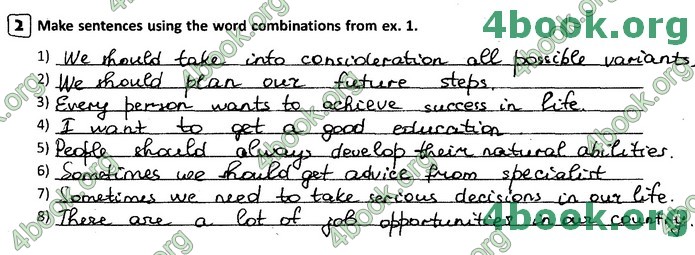 4book.org
2 Make sentences using the word combinations from ex. 1.
1) We should take into consideration all possible variants.
2) We should plan our future steps.
3) Every person wants to achieve success in life.
4) I want to get a good education
5) People should always develop their natural abilities.
6) Sometimes we should get advice from specialist
7) Sometimes we need to take serious decisions in our life.
8) There are a lot of job opportunities in our country.
4book.org
4book.org
4book.org
4book.org
4book.org
4book.org